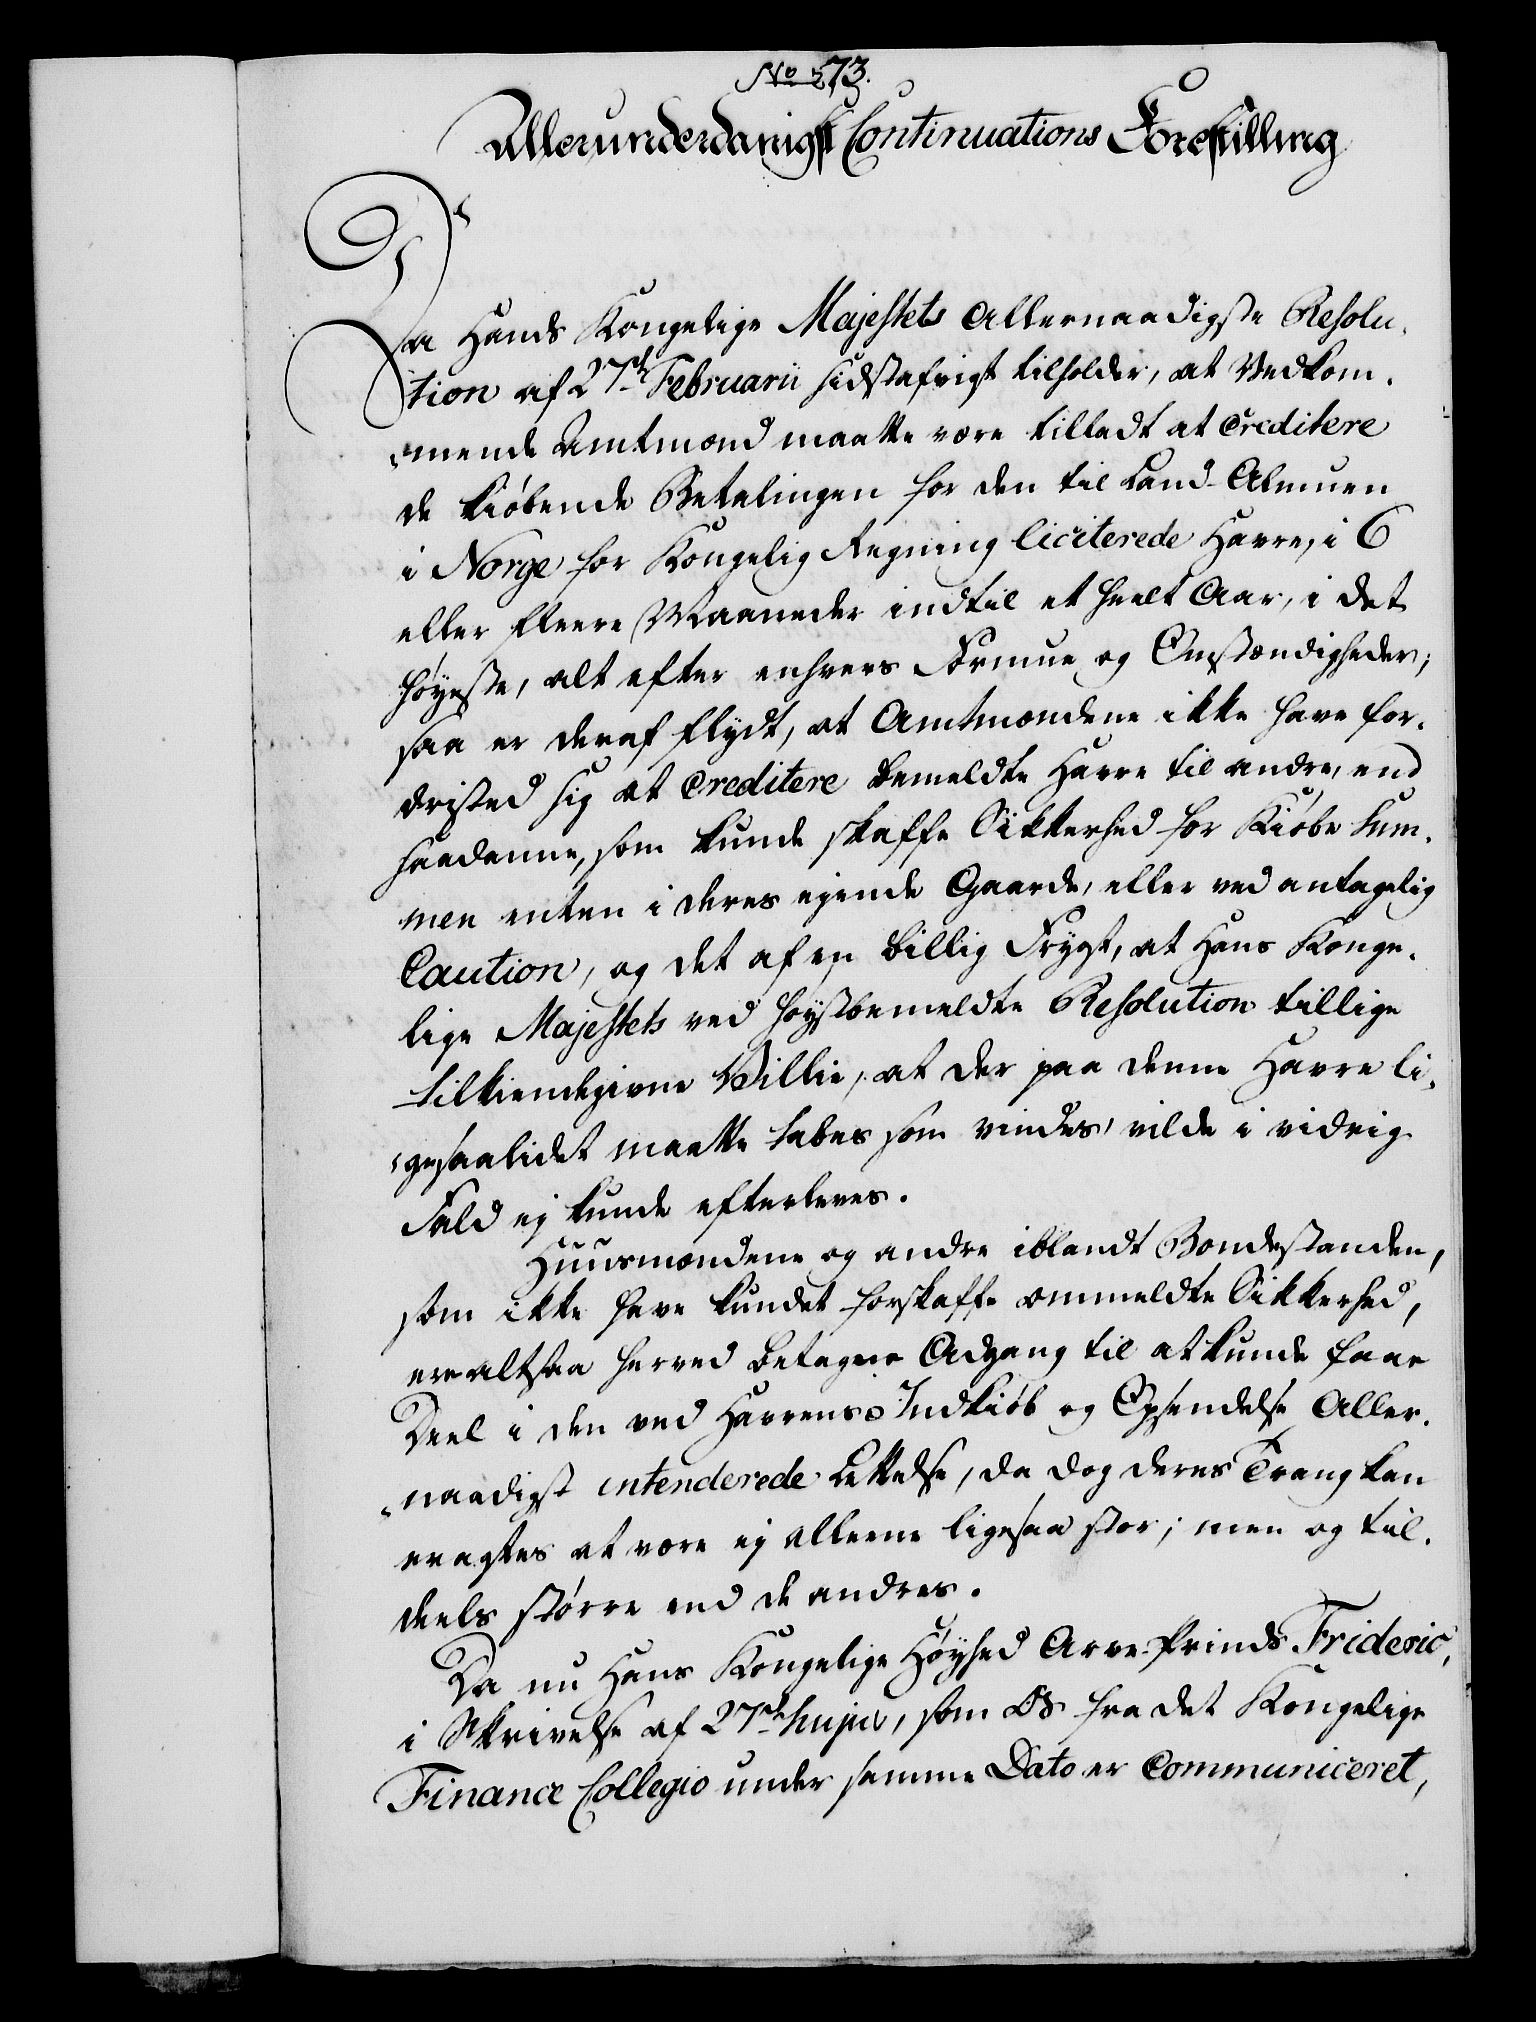 No 573.
Allerunderdanigst Continuations Forestilling
Da Hands Kongelige Majestets Allernaadigste Resolu-
tion af 27de Februarii sidstafvigt tilholder, at Vedkom-
mende Amtmænd maatte være tilladt at creditere
de kiøbende Betalingen for den til Land-Almuen
i Norge for Kongelig Regning liciterede Havre, i 6
eller fleere Maaneder indtil et heelt Aar, i det
høyeste, alt efter enhvers Formue og Omstændigheder;
saa er deraf flydt, at Amtmændene ikke have for-
dristed sig at creditere bemeldte Havre til andre, end
saadanne, som kunde skaffe Sikkerhed for Kiøbe Sum-
men enten i deres eyende Gaarde, eller ved antagelig
Caution, og det af en billig Frygt, at Hans Konge-
lige Majestets ved høystbemeldte Resolution tillige
tilkiendegivne Villie, at der paa denne Havre li-
gesaalidet maatte tabes som vindes, vilde i vidrig
Fald ej kunde efterleves.
Huusmændene og andre iblandt Bondestanden,
som ikke have kundet forskaffe ommeldte Sikkerhed,
ere altsaa herved betagne Adgang til at kunde faae
Deel i den ved Havrens Indkiøb og Opsendelse Aller-
naadigst intenderede Lettelse, da dog deres Trang kan
eragtes at være ej alleene ligesaa stor; men og til-
deels større end de andres.
Da nu Hans Kongelige Høyhed Arve-Prinds Frideric,
i Skrivelse af 27de hujus, som Os fra det Kongelige
Finance Collegio under samme Dato er communiceret,